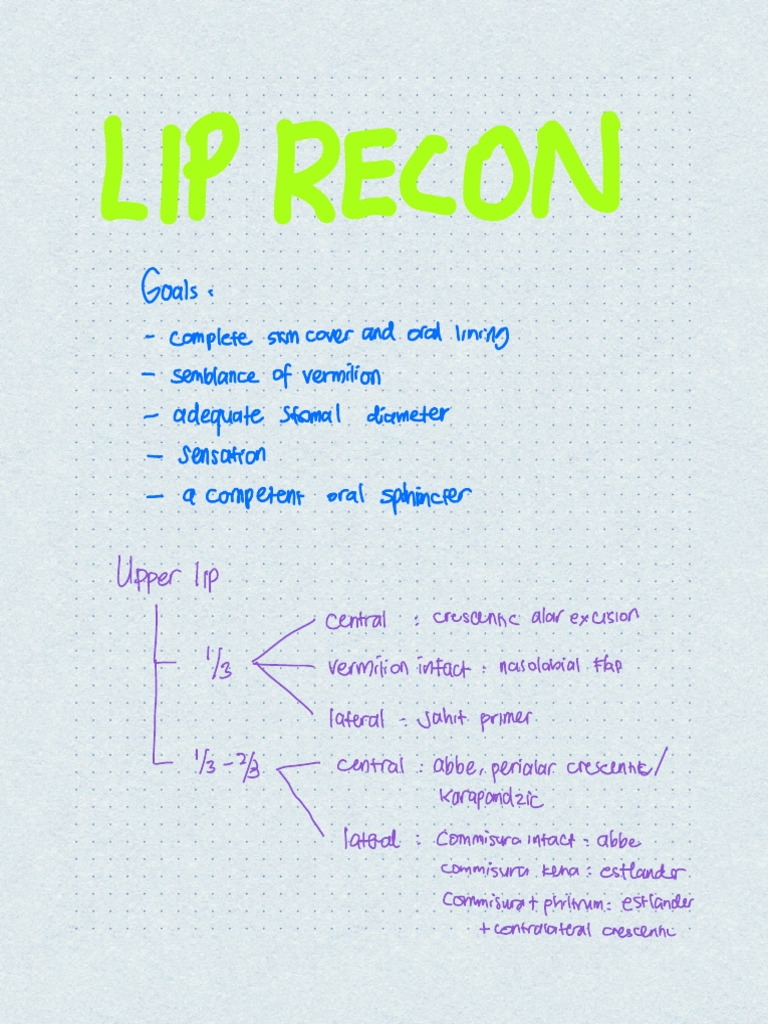 LIP RECON
Goals :
- complete skin cover and oral lining
- semblance of vermilion
- adequate stomal diameter
- sensation
- a competent oral sphincter
Upper lip
1/3
central : crescentic alar excision
vermilion intact : nasolabial flap
lateral - jahit primer
1/3 - 2/3
central : abbe, perialar crescentic/
karapandzic
lateral : Commisura intact = abbe
commisura kena : estlander
Commisura + philtrum : estlander
+ contralateral crescentic